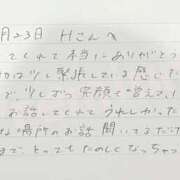 月23日 Hさんへ
てくれて本当にありがとう
は少し緊張している感じ
で、少しずつ笑顔も増えてい
お話してくれてうれしかった
な場所のお話 聞いてるだけ
まで、とってもたのしくなっちゃっ